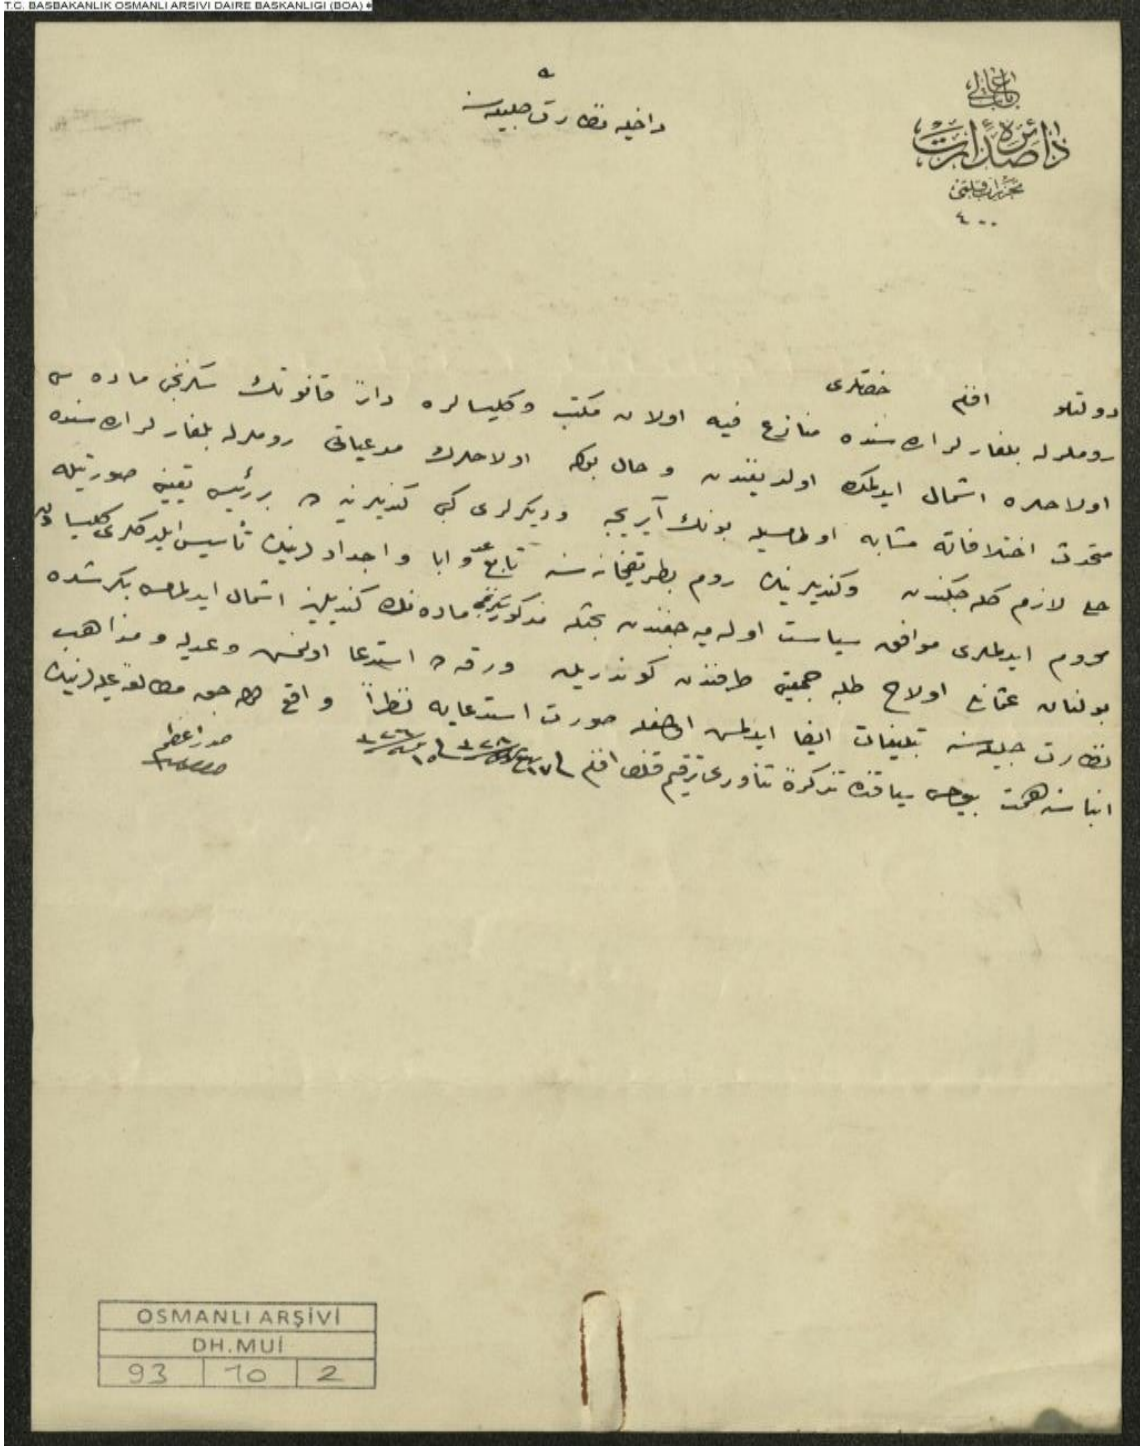 T.C. BASBAKANLIK OSMANLI ARSIVI DAIRE BASKANLIGI (BOA)
باب عالی
دائرهٔ صدارت
تحریرات قلمی
٤٠٠
داخلیه نظارت جلیله‌سنه
دولتلو افندم حضرتلری
روملرله بلغارلر اراسنده منازع فیه اولان مکتب و کلیسالره دائر قانونك سکزنجی ماده سی
اولاحلره اشمال ایدلمك اولدیغندن و حال بوکه اولاحلرك مدعیاتی روملرله بلغارلر اراسنده
متحدث اختلافاته مشابه اولمامسیله بونك آیریجه و دیکرلری کبی کندیلرینه ده بر رئیس تعیینی صورتیله
حلی لازم کله‌جکندن و کندیلرینك روم بطریقخانه‌سنه تابع و ابا و اجدادلرینك تأسیس ایلدکلری کلیسادن
محروم ایدلملری موافق سیاست اوله‌میه‌جغندن بحثله مذکور سکزنجی ماده‌نك کندیلرینه اشمال ایدلمامسی
بولنان عثمانلی اولاح طلبه جمعیتی طرفندن کوندریلن ورقه‌ده استدعا اولنمش و عدلیه و مذاهب
نظارت جلیله‌سنه تبلیغات ایفا ایدلمش اولمغله صورت استدعایه نظراً واقع اوله‌جق مطالعهٔ علیه‌لرینك
انباسنه همت بیورلمسی سیاقنده تذکرهٔ ثناوری ترقیم قلندی افندم
صدر اعظم
OSMANLI ARŞİVİ
DH.MUİ
93 10 2